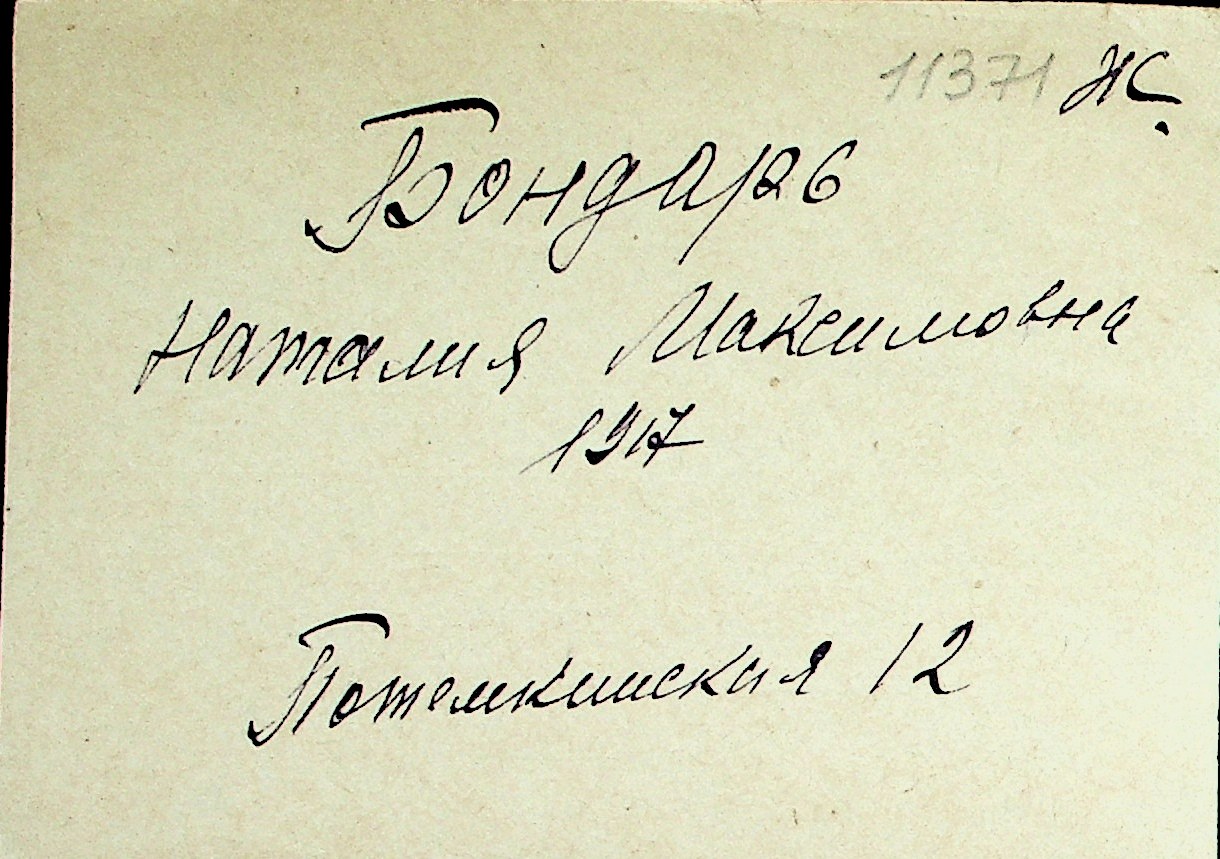 11371 Ж.
Бондарь
Наталия Максимовна
1917
Потемкинская 12